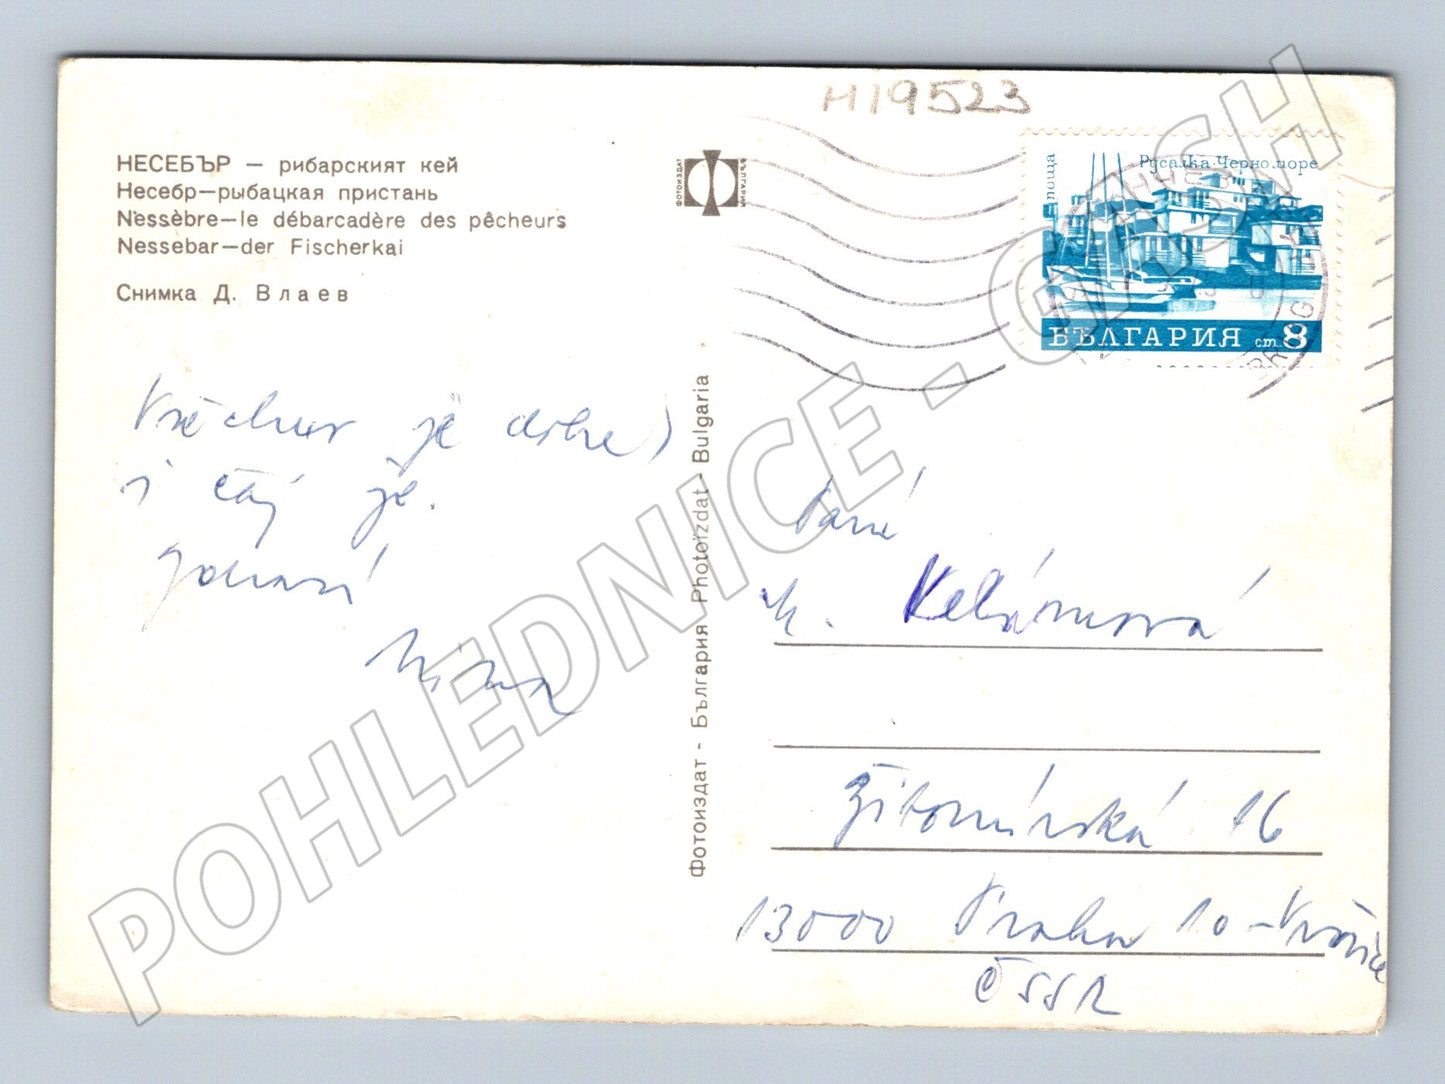 H19523
НЕСЕБЪР — рибарският кей
Несебр—рыбацкая пристань
Nessèbre—le débarcadère des pêcheurs
Nessebar—der Fischerkai
Снимка Д. Влаев
ФОТОИЗДАТ
БЪЛГАРИЯ
поща
Русалка Черно море
БЪЛГАРИЯ ст. 8
Фотоиздат - България Photoïzdat - Bulgaria
je
i čaj je.
Paní
M.
Žitomírská 16
13000 Praha 10 -
ČSSR
POHLEDNICE - CASH